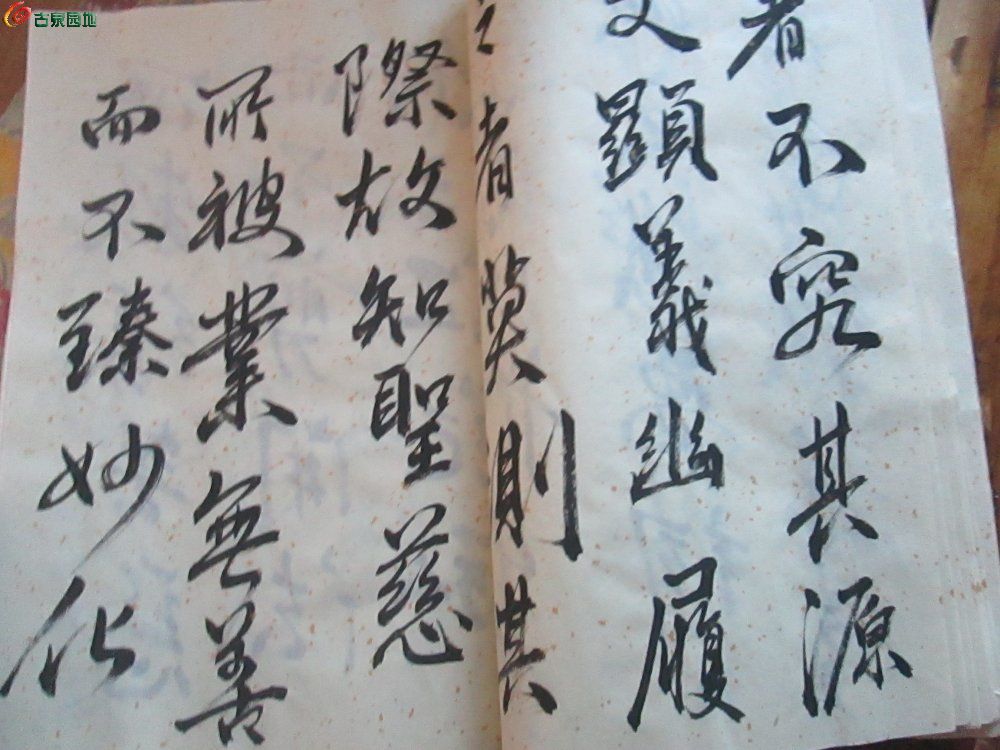 古泉园地
者不究其源
文顯義幽履
之者莫測其
際故知聖慈
所被業無善
而不臻妙化